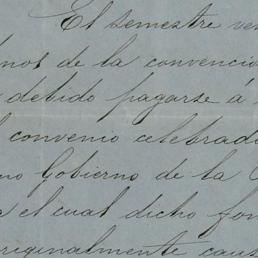 El semestre ven
inos de la convencio
debido pagarse á
convenio celebrad
no Gobierno de la
el cual dicho fon
originalmente caus